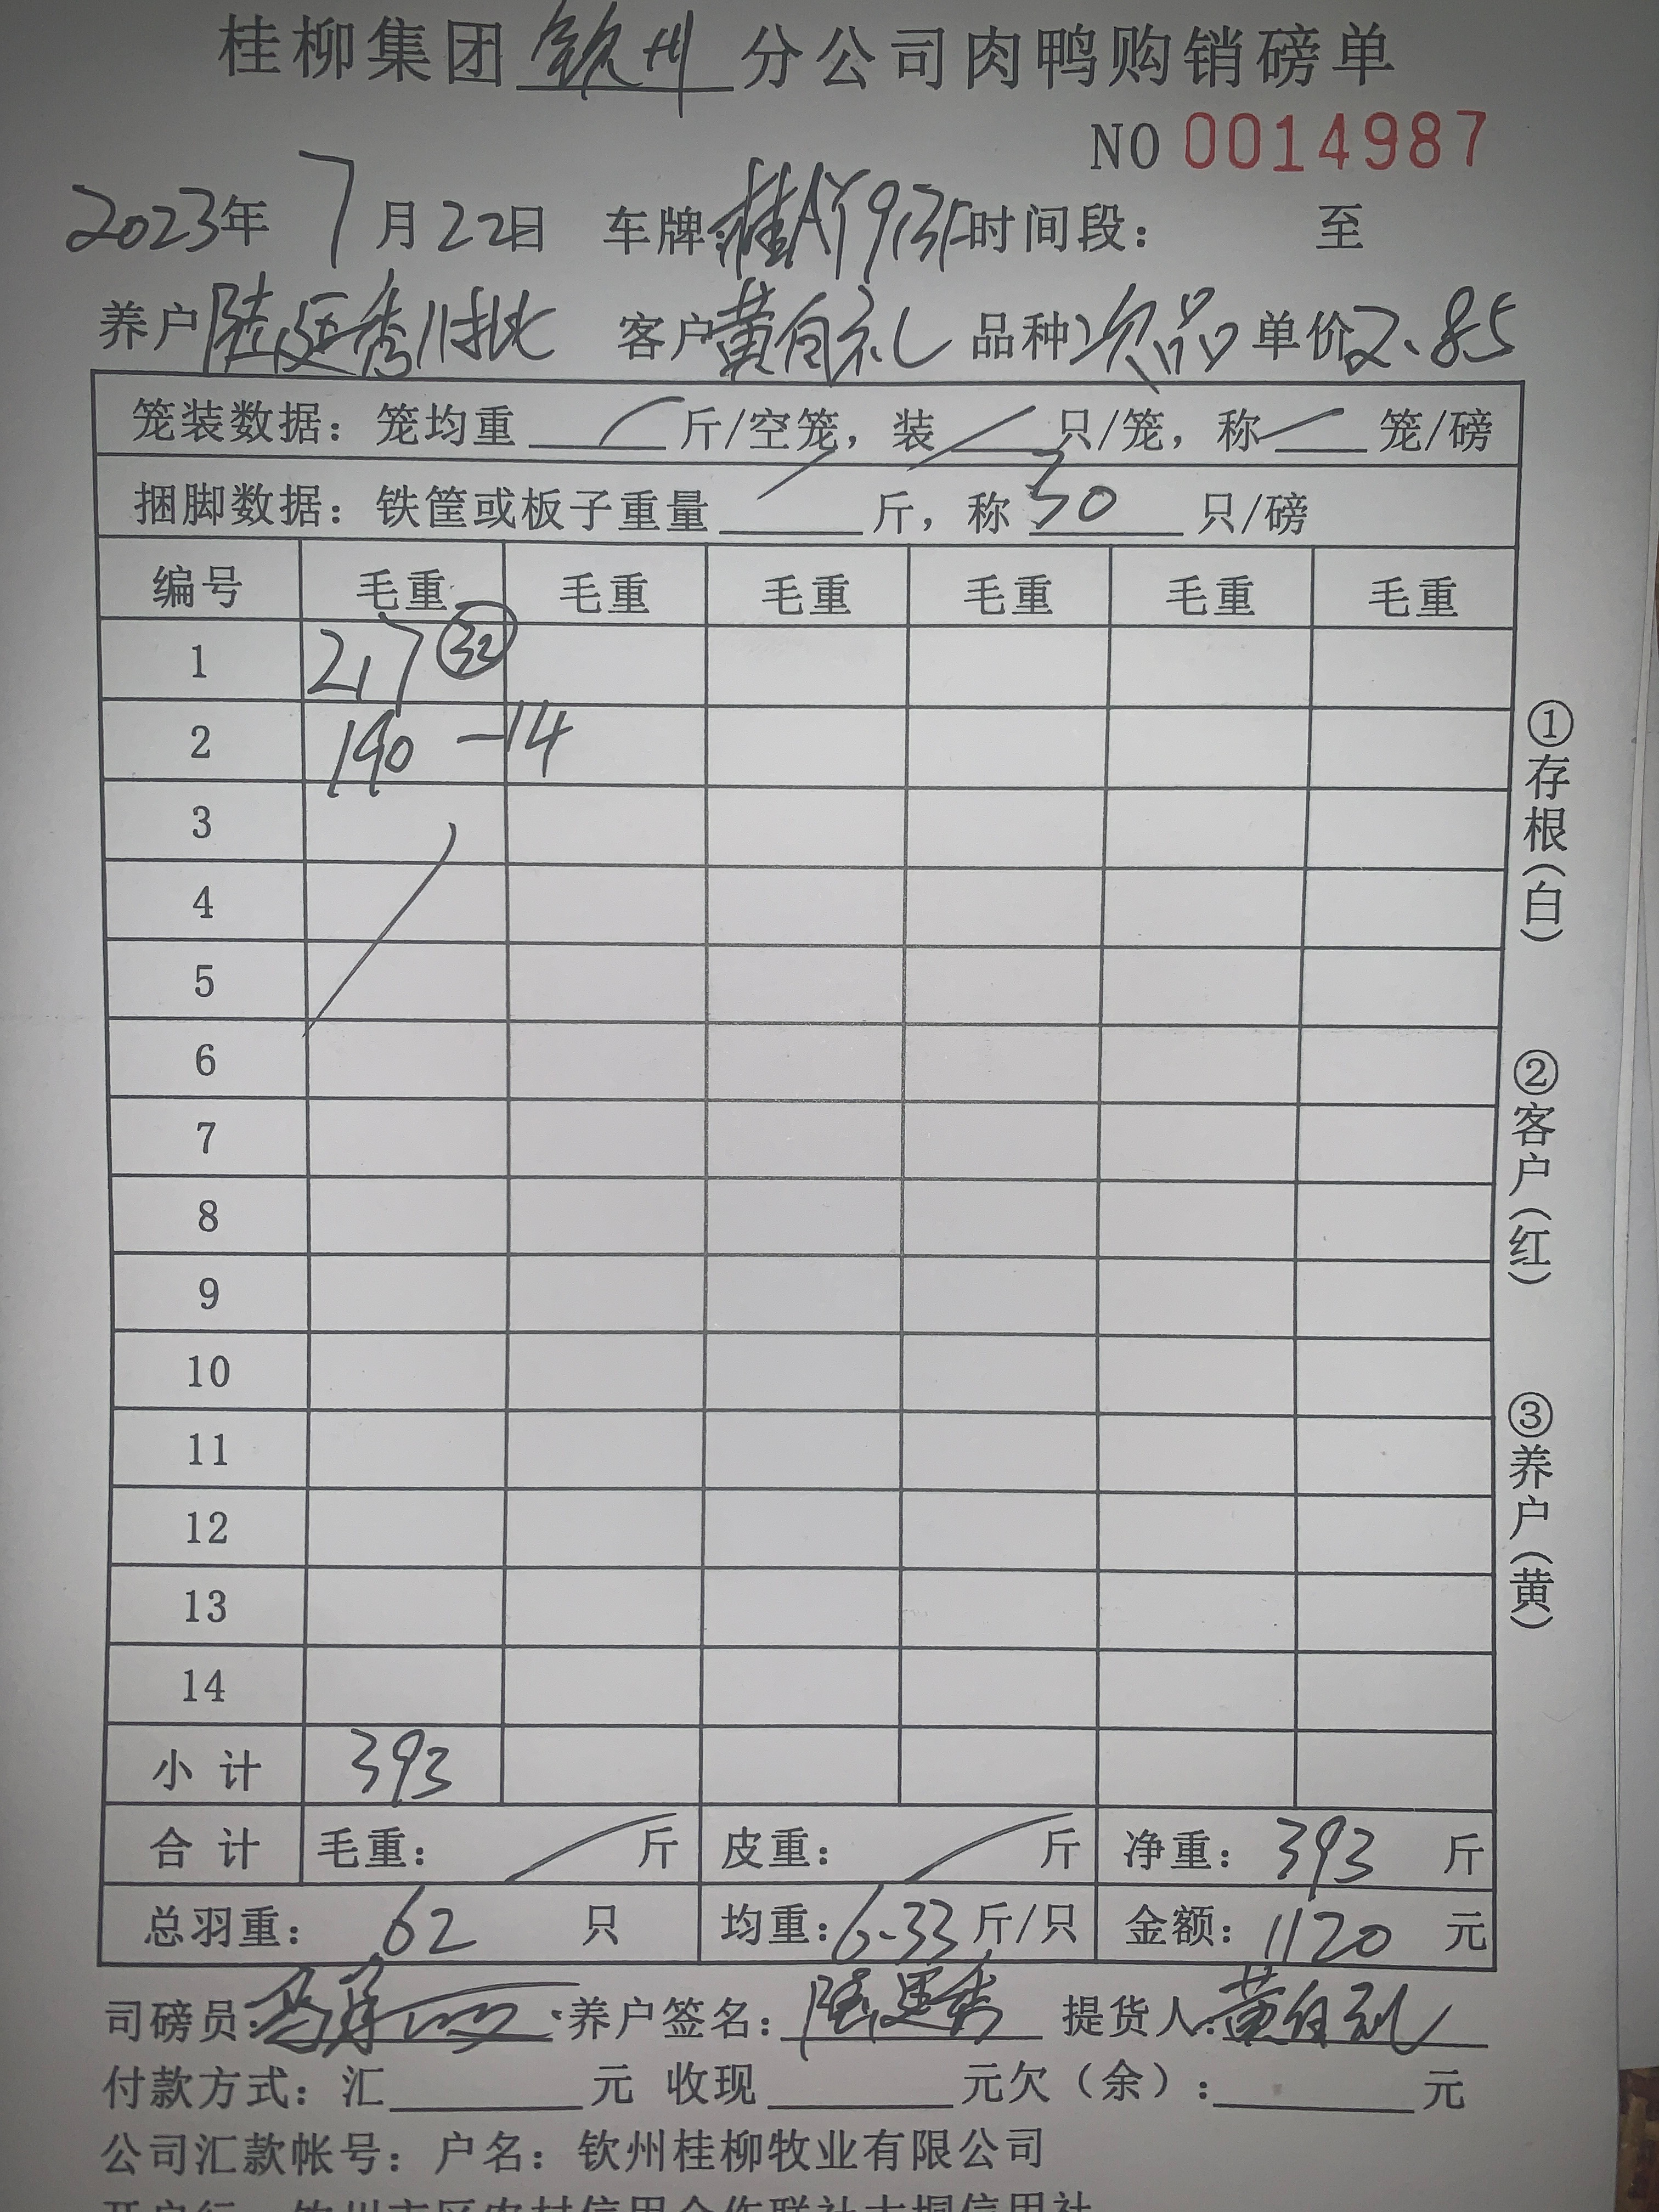 桂柳集团钦州分公司肉鸭购销磅单
NO 0014987
2023年7月22日 车牌:桂AY9 时间段: 至
养户陆廷秀11批 客户黄自礼 品种次品 单价2.85
笼装数据: 笼均重 / 斤/空笼, 装 / 只/笼, 称 / 笼/磅
捆脚数据: 铁筐或板子重量 / 斤, 称 30 只/磅
编号 毛重 毛重 毛重 毛重 毛重 毛重
1 217 ㉜
2 190 -14
3
4
5
6
7
8
9
10
11
12
13
14
小计 393
合计 毛重: / 斤 皮重: / 斤 净重: 393 斤
总羽重: 62 只 均重: 6.33 斤/只 金额: 1120 元
司磅员: 养户签名: 陆廷秀 提货人: 黄自礼
付款方式: 汇 元 收现 元欠(余): 元
公司汇款帐号: 户名: 钦州桂柳牧业有限公司
①存根(白)
②客户(红)
③养户(黄)